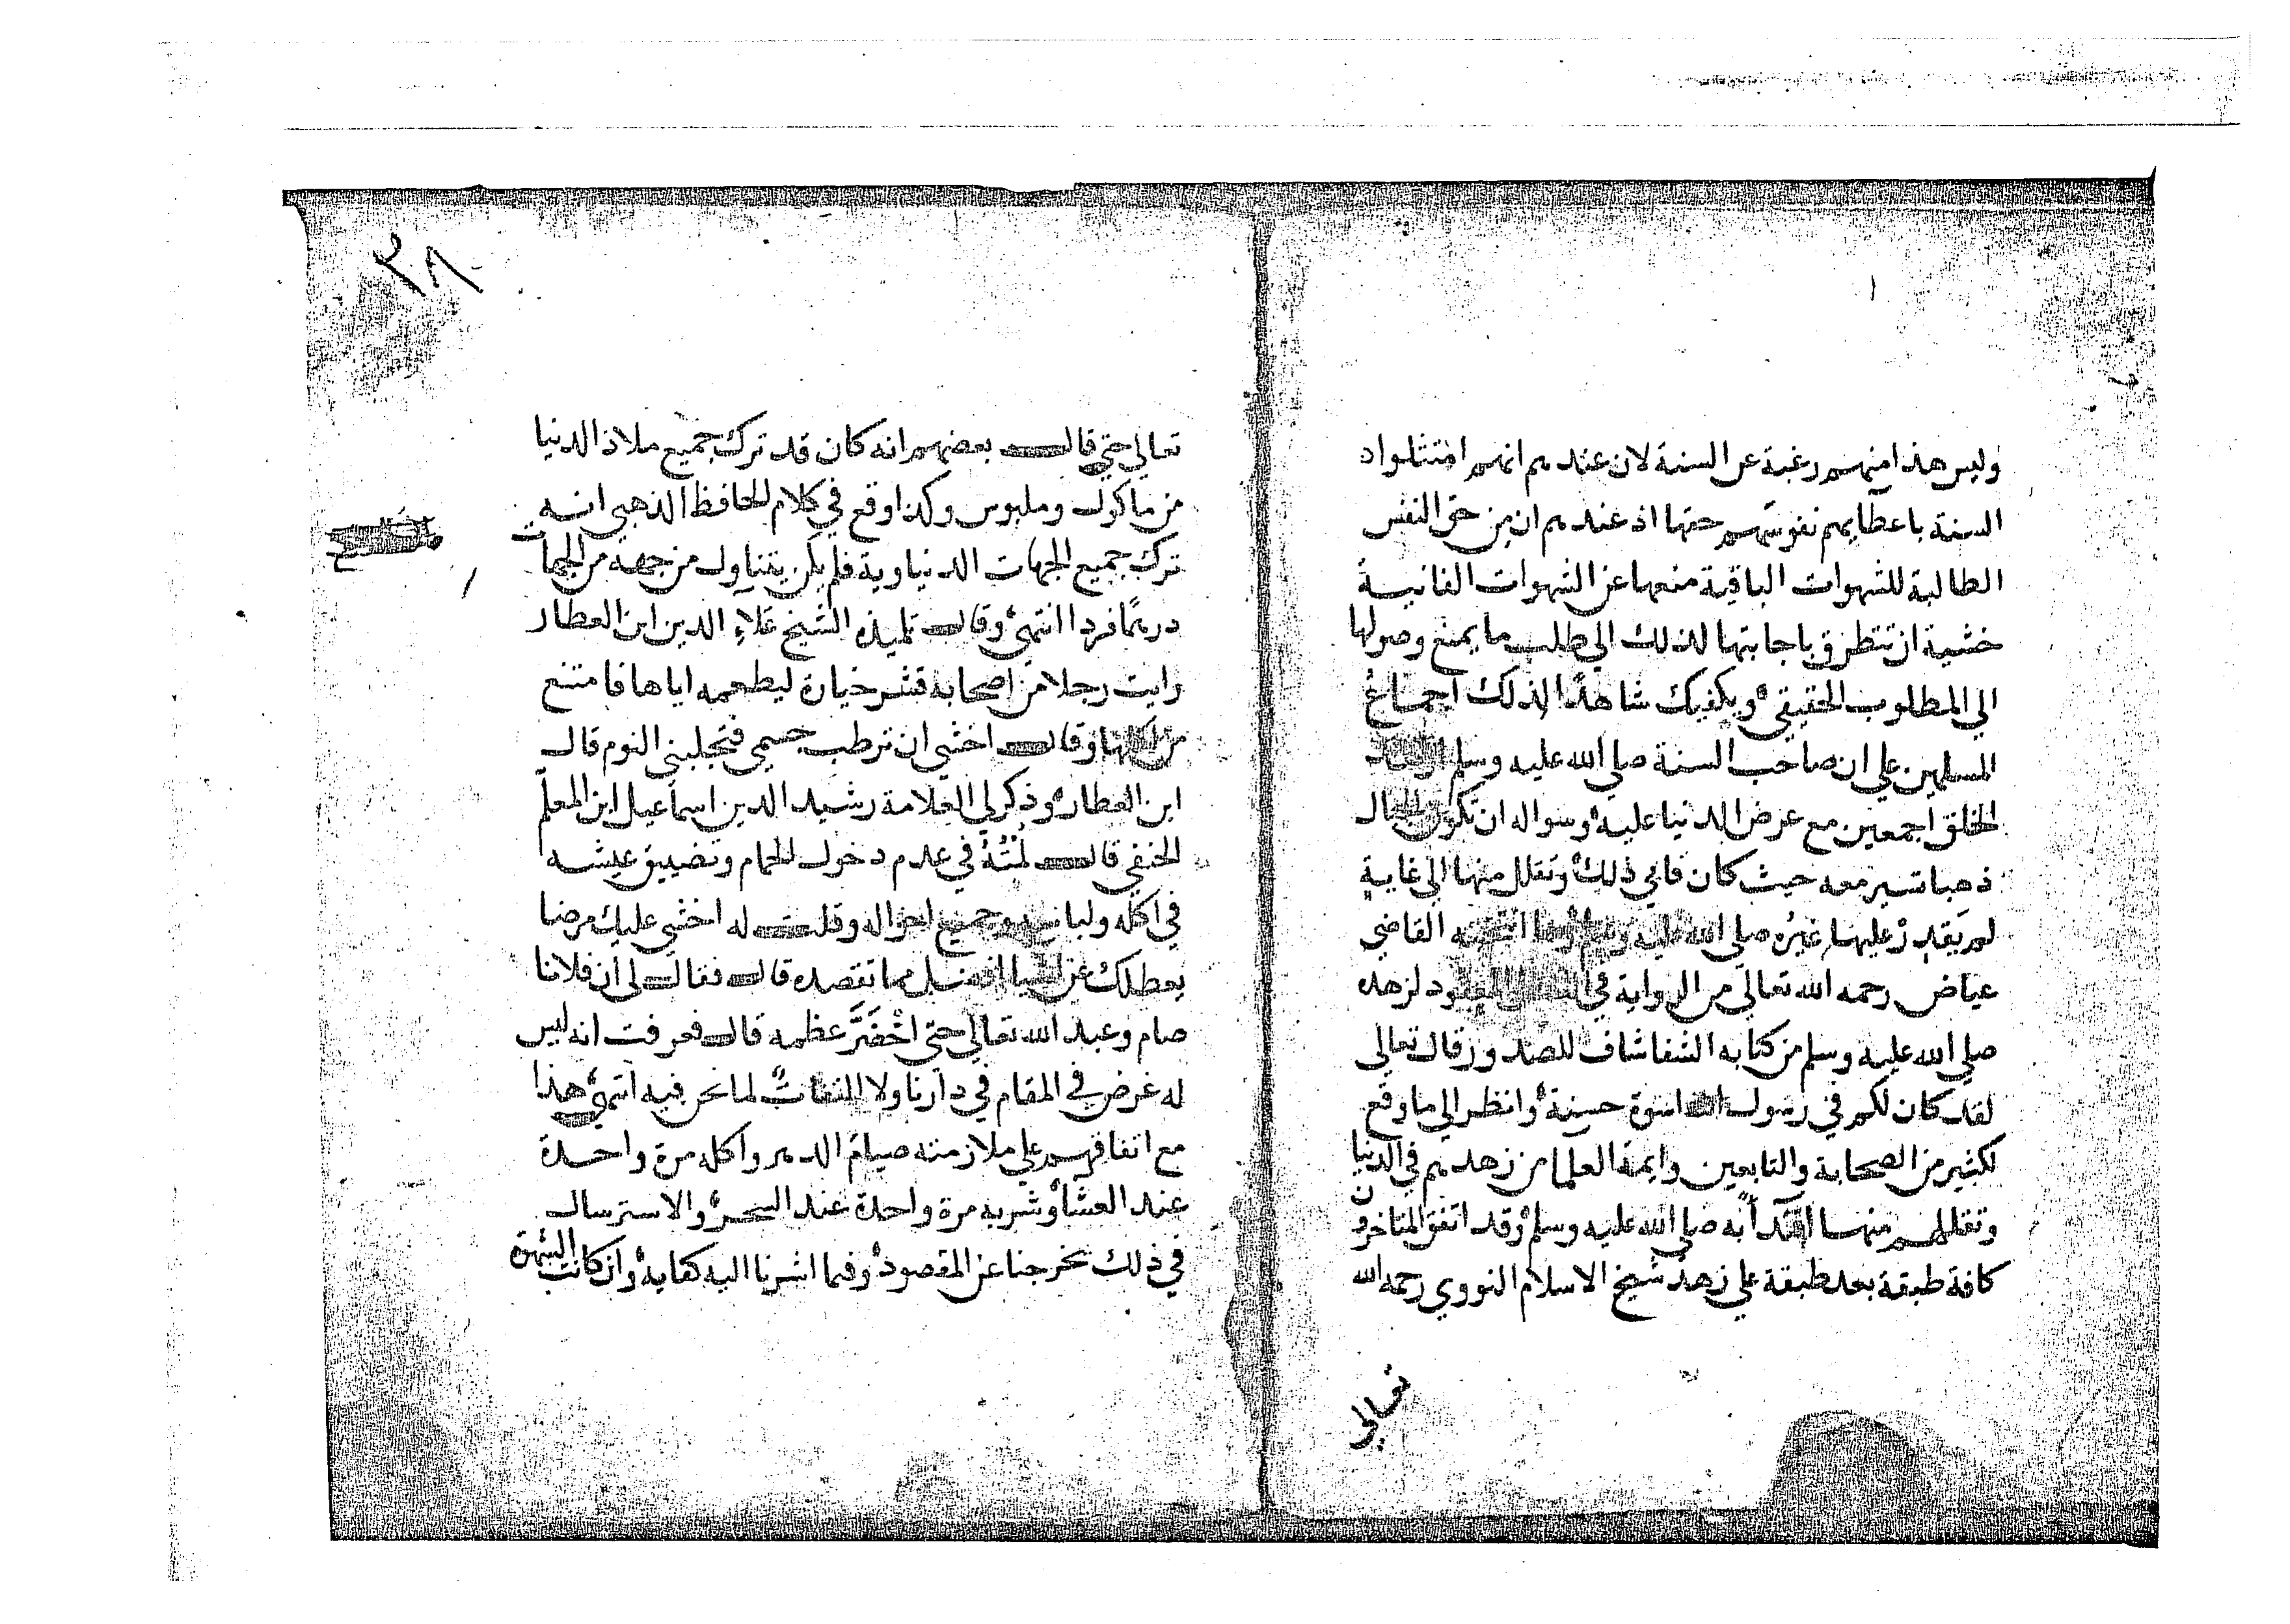 وليس هذا منهم رغبة عن السنة لان عندهم انهم امتثلواد
السنة باعطايهم نفوسهم حقها اذ عندهم ان من حق النفس
الطالبة للشهوات الباقية منعها عن الشهوات الفانية
خشية ان تتطرق باجابتها لذلك الي طلب ما يمنع وصولها
الي المطلوب الحقيقي ويكفيك شاهدا لذلك اجماع
المسلمين علي ان صاحب السنة صلي الله عليه وسلم
الخلق اجمعين مع عرض الدنيا عليه وسواله ان تكون الجبال
ذهبا تسير معه حيث كان فابي ذلك وتقلل منها الي غاية
لم يقدر عليها غيره صلي الله عليه وسلم القاضي
عياض رحمه الله تعالي من الرواية في المعقود لزهده
صلي الله عليه وسلم من كتابه الشفا شاف للصدور قال تعالي
لقد كان لكم في رسول الله اسوة حسنة وانظر الي ما وقع
لكثير من الصحابة والتابعين وايمة العلما من زهدهم في الدنيا
وتقللهم منها اقتدآ به صلي الله عليه وسلم وقد اتفق المتاخرون
كافة طبقة بعد طبقة علي زهد شيخ الاسلام النووي رحمه الله
تعالي
٢٨
تعالي حتي قال بعضهم انه كان قد ترك جميع ملاذ الدنيا
من ماكول وملبوس وكذا وقع في كلام الحافظ الذهبي انه
ترك جميع الجهات الدنياوية فلم يكن يتناول من جهة من الجهات
درهما فردا انتهي وقال تلميذه الشيخ علاء الدين ابن العطار
رايت رجلا من اصحابه قشر خيارة ليطعمه اياها فامتنع
من اكلها وقال اخشي ان ترطب جسمي فتجلبني النوم قال
ابن العطار وذكر لي العلامة رشيد الدين اسماعيل ابن المعلم
الحنفي قال لمته في عدم دخول الحمام وتضييق عيشه
في اكله ولباسه وجميع احواله وقلت له اخشي عليك مرضا
يعطلك عن اشيا افضل مما تقصده قال فقال لي ان فلانا
صام وعبد الله تعالي حتي اخضر عظمه قال فعرفت انه ليس
له غرض في المقام في دارنا ولا التفات لما نحن فيه انتهي هذا
مع اتفاقهم علي ملازمته صيام الدهر واكله مرة واحدة
عند العشا وشربه مرة واحدة عند السحر والاسترسال
في ذلك يخرجنا عن المقصود وفيما اشرنا اليه كفاية وان كانت الشهرة